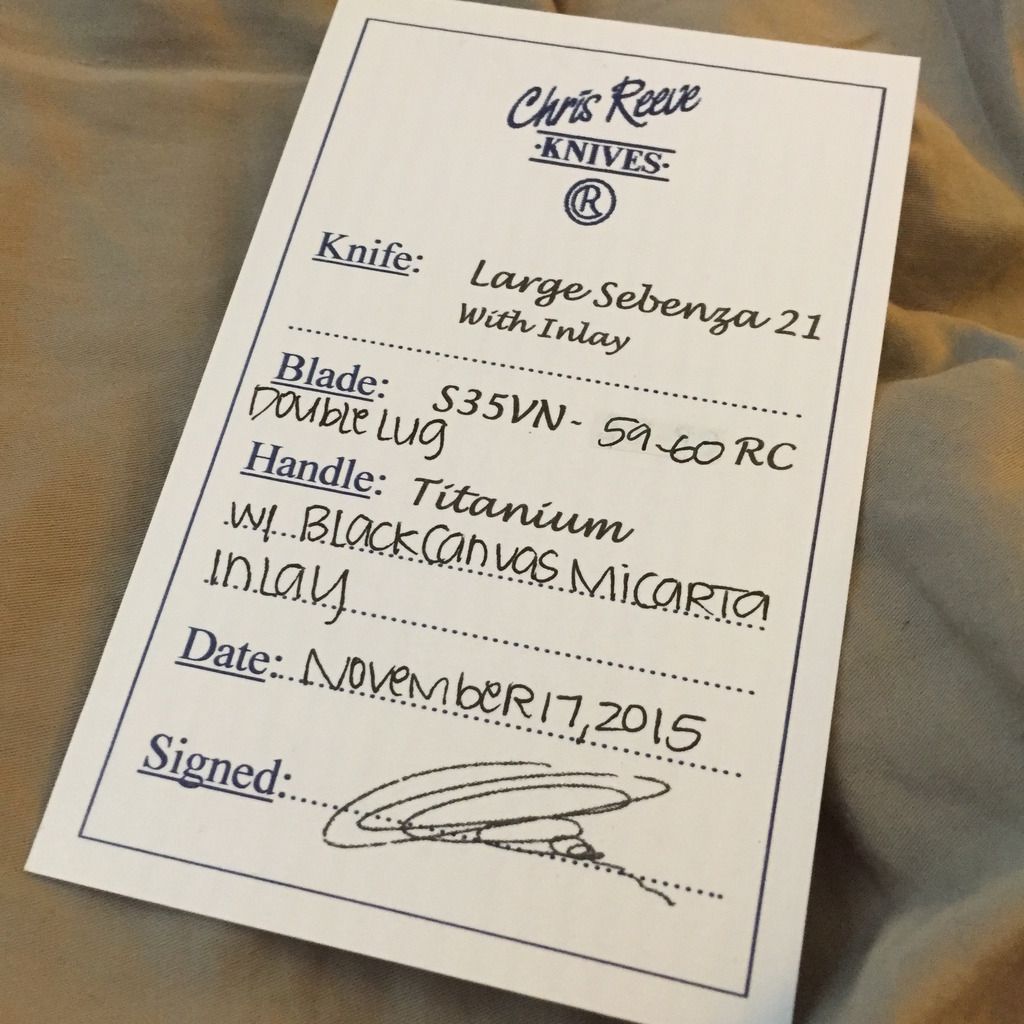 Chris Reeve
·KNIVES·
®
Knife: Large Sebenza 21
With Inlay
Blade: S35VN - 59-60 RC
Double Lug
Handle: Titanium
w/ Black Canvas Micarta
Inlay
Date: November 17, 2015
Signed: